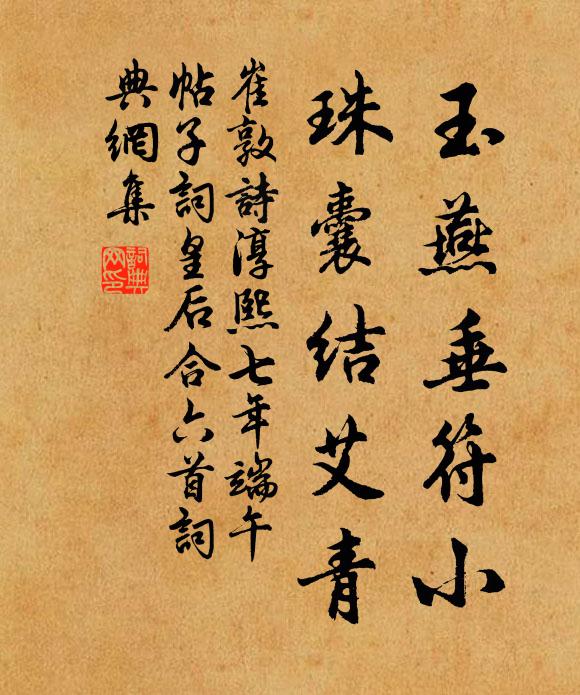 玉燕垂符小
珠囊结艾青
崔敦詩淳熙七年端午
帖子詞皇后合六首詞
典網集
詞典网印